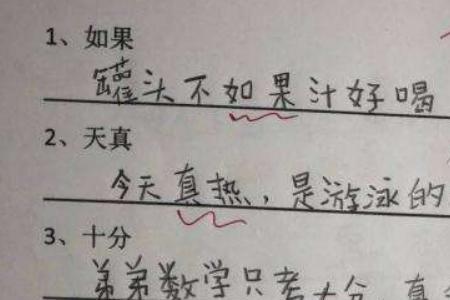 1、如果
罐头不如果汁好喝
2、天真
今天真热，是游泳的
3、十分
弟弟数学只考十分，真